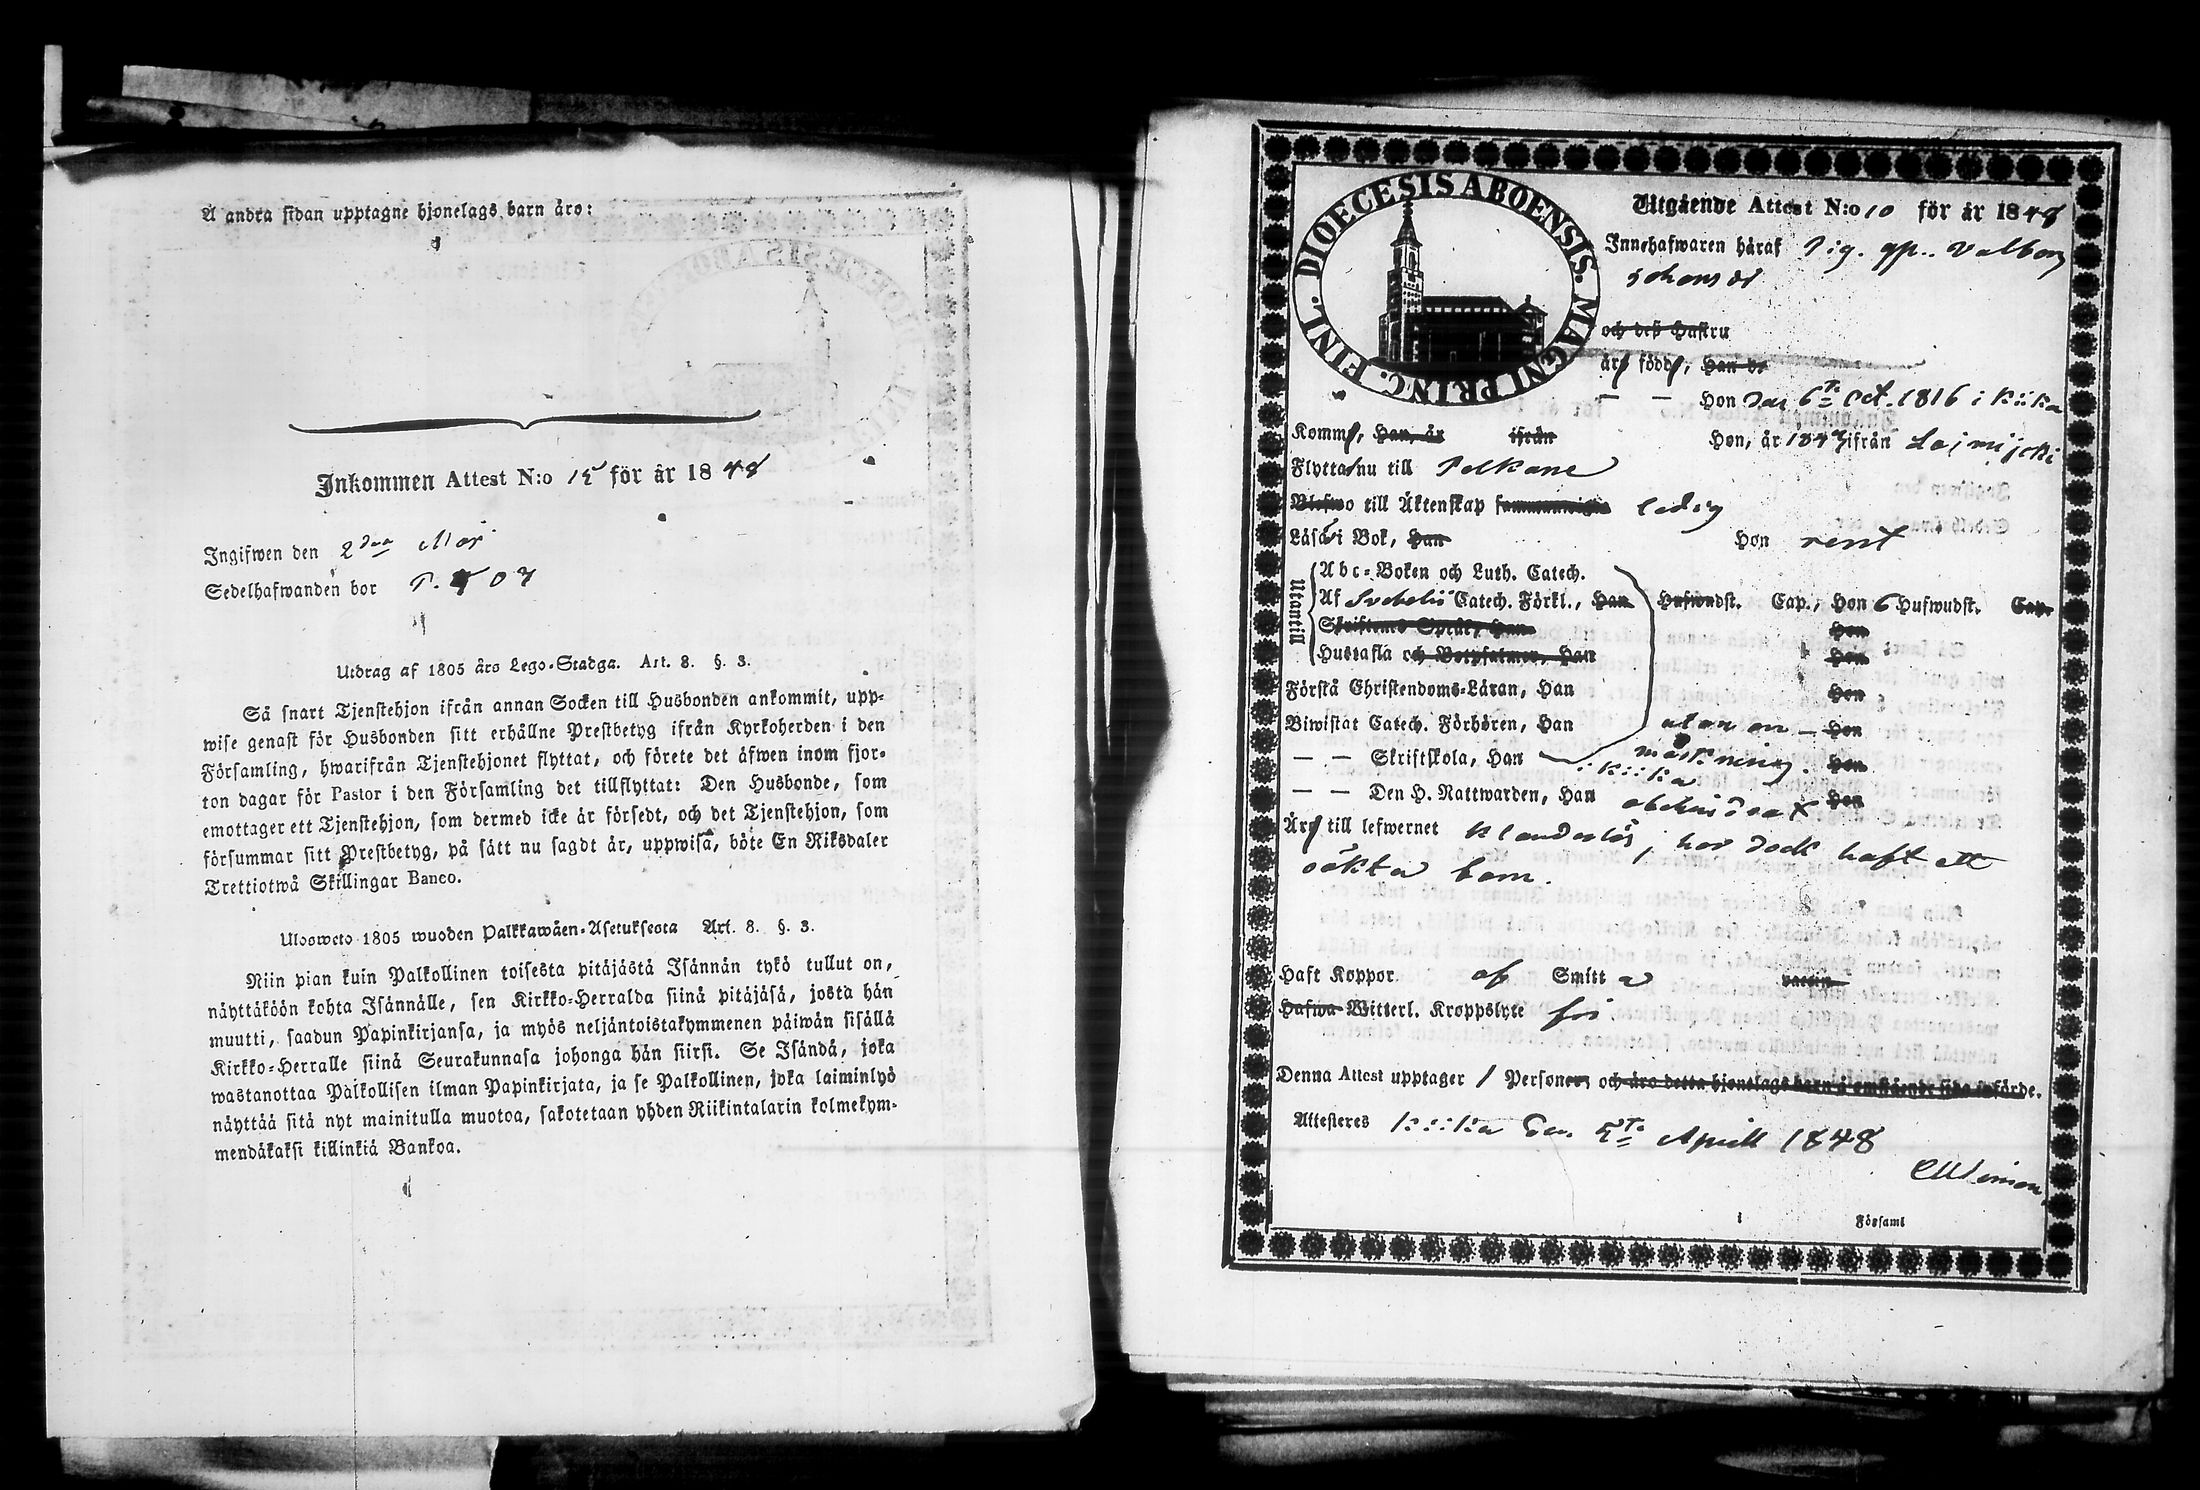 Å andra sidan upptagne hjonelags barn äro:
Inkommen Attest N:o 15 för år 1848
Ingifwen den 2dra Mar
Sedelhafwanden bor P. 407
Utdrag af 1805 års Lego-Stadga. Art. 8. §. 3.
Så snart Tjenstehjon ifrån annan Socken till Husbonden ankommit, upp-
wise genast för Husbonden sitt erhållne Prestbetyg ifrån Kyrkoherden i den
Församling, hwarifrån Tjenstehjonet flyttat, och förete det äfwen inom fjor-
ton dagar för Pastor i den Församling det tillflyttat: Den Husbonde, som
emottager ett Tjenstehjon, som dermed icke är försedt, och det Tjenstehjon, som
försummar sitt Prestbetyg, på sätt nu sagdt är, uppwisa, böte En Riksdaler
Trettiotwå Skillingar Banco.
Ulosweto 1805 wuoden Palkkawäen-Asetuksesta Art. 8. §. 3.
Niin pian kuin Palkollinen toisesta pitäjästä Isännän tykö tullut on,
näyttäköön kohta Isännälle, sen Kirkko-Herralda siinä pitäjäsä, josta hän
muutti, saadun Papinkirjansa, ja myös neljäntoistakymmenen päiwän sisällä
Kirkko-Herralle siinä Seurakunnasa johonga hän siirsi. Se Isändä, joka
wastanottaa Palkollisen ilman Papinkirjata, ja se Palkollinen, joka laiminlyö
näyttää sitä nyt mainitulla muotoa, sakotetaan yhden Riikintalarin kolmekym-
mendäkaksi killinkiä Bankoa.
DIOECESIS ABOENSIS. MAGNI PRINC. FINL.
Utgående Attest N:o 10 för år 1848
Innehafwaren häraf Pig. Valborg
Johansdr
och deß Hustru
äro födde, Han d.
— — Hon den 6te Oct. 1816 i Kiika
Komme, Han, år ifrån Hon, år 1847 ifrån Loimijoki
Flytta nu till Pelkane
till Äktenskap ledig
Läsa i Bok, Han Hon rent
Utantill
Abc-Boken och Luth. Catech.
Af Svebelii Catech. Förkl., Han Hufwudst. Cap., Hon 6 Hufwudst. Cap.
Skriftens Språk, Han Hon
Hustafla och Botpsalmer, Han Hon
Förstå Christendoms-Läran, Han Hon
Biwistat Catech. Förhören, Han utan an- Hon
— — Skriftskola, Han märkning. Hon
i Kiika
— — Den H. Nattwarden, Han obehindrat Hon
Äro till lefwernet klanderlös, har dock haft ett
oäkta barn.
Haft Koppor af Smitta vaccin
Hafwa Witterl. Kroppslyte fri
Denna Attest upptager 1 Personer, och äro detta hjonelags barn å omstående sida införde.
Attesteres Kiika den 5te Aprill 1848
i Församl